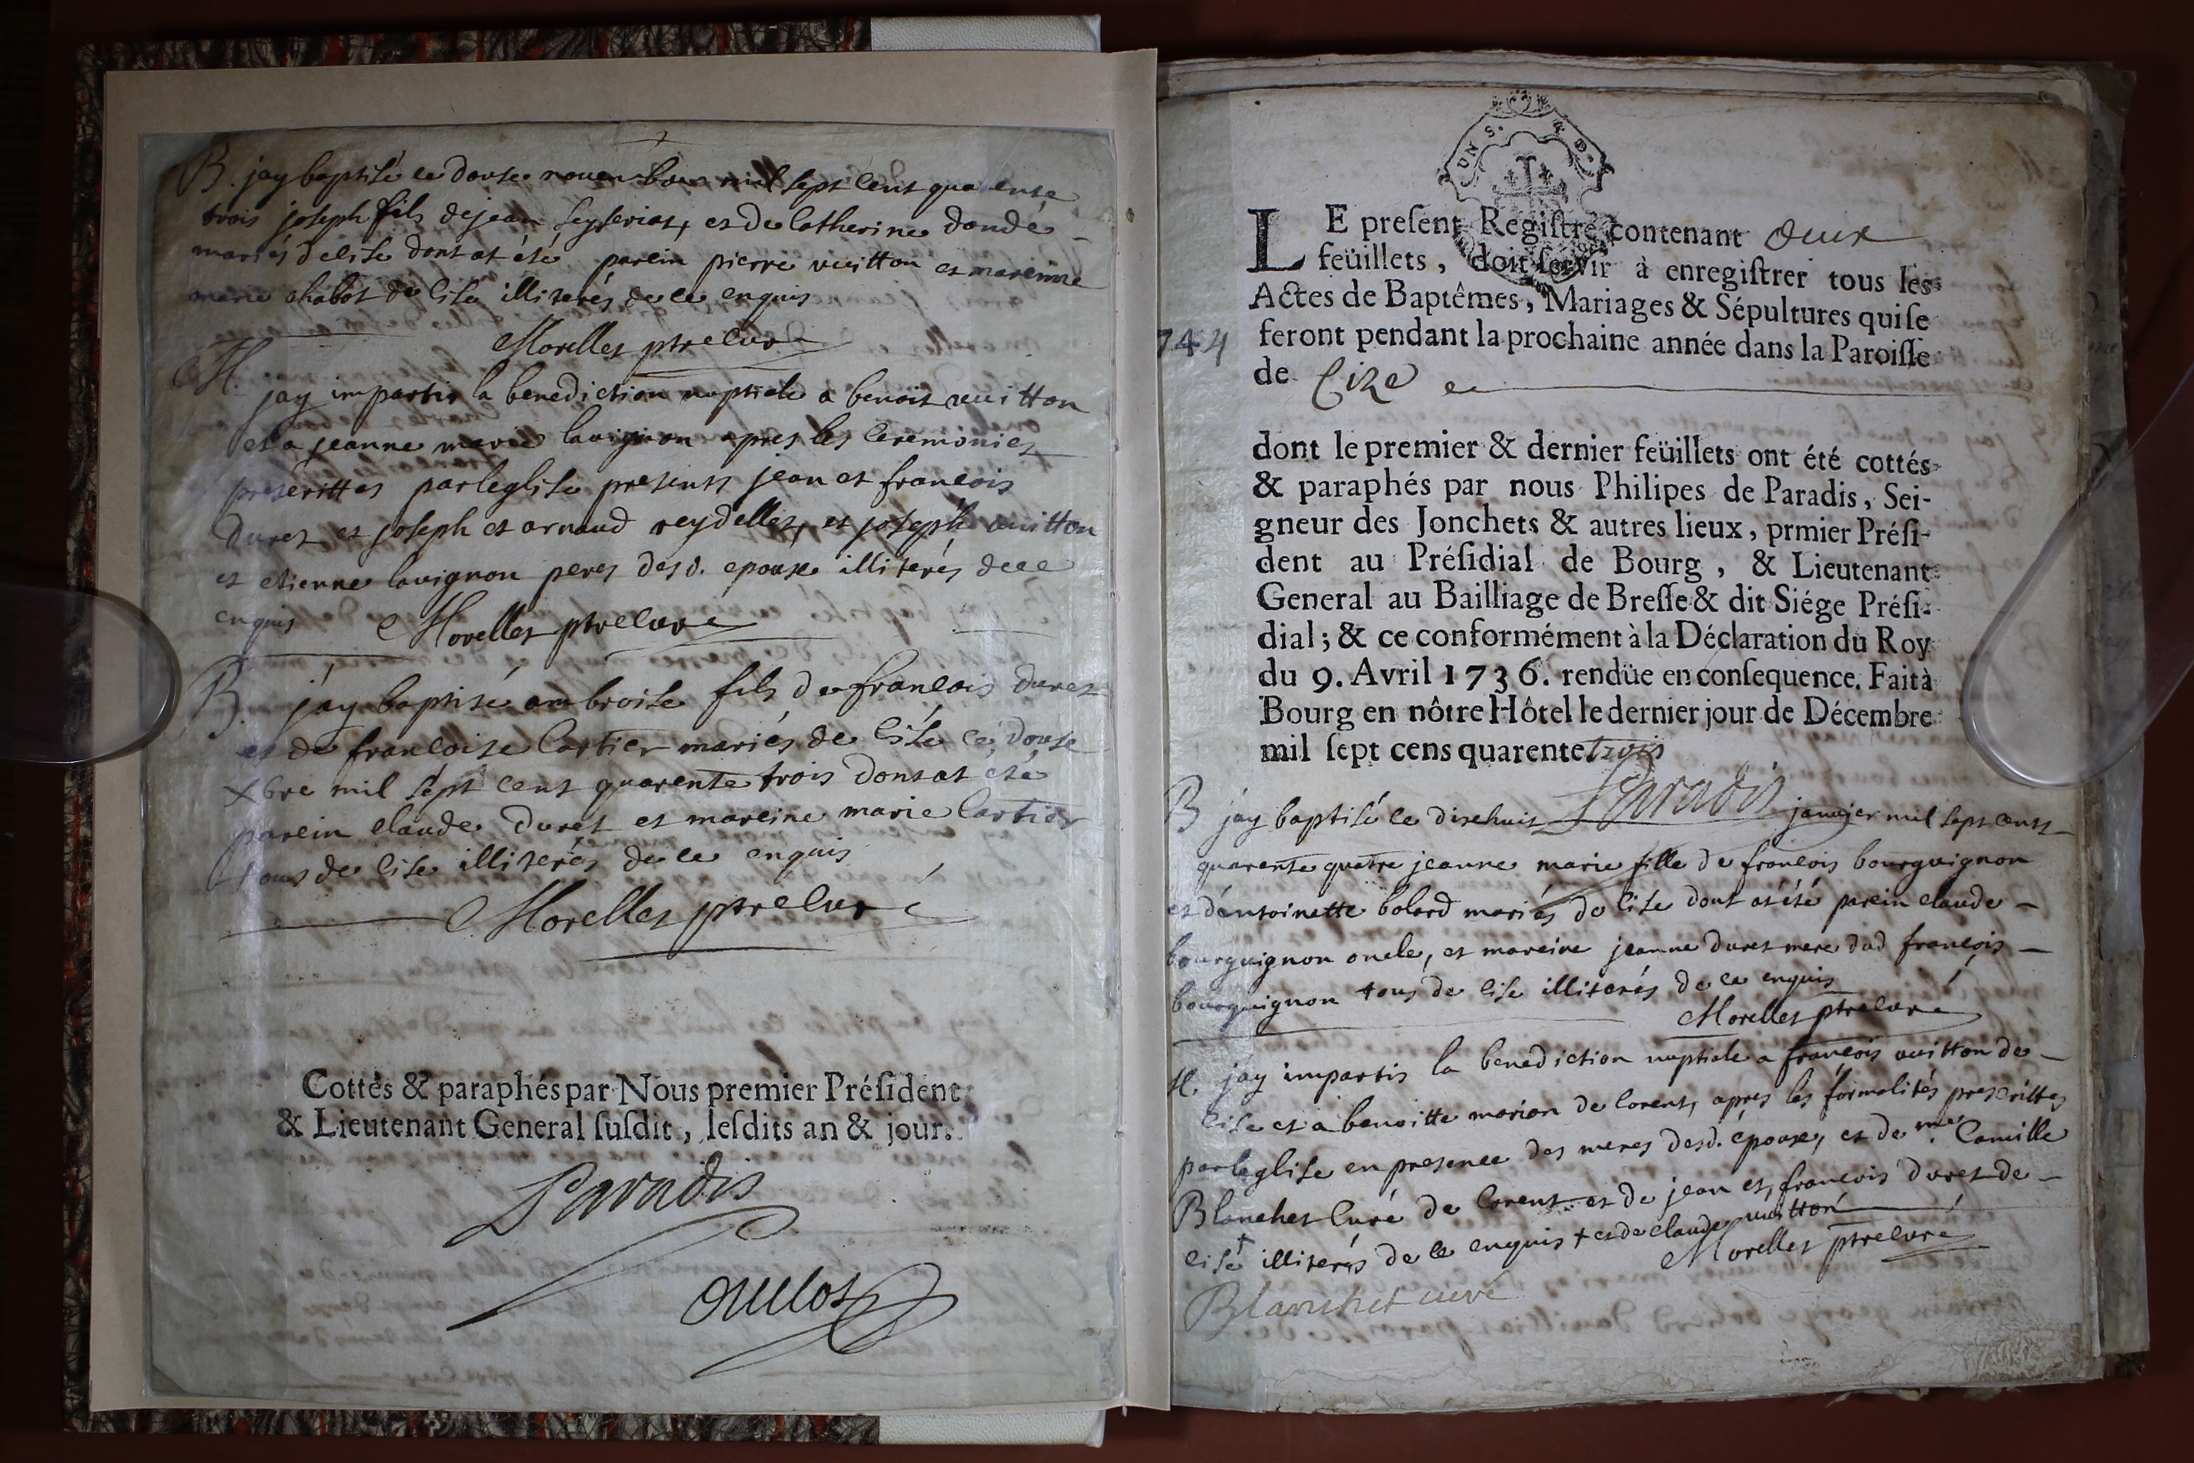 B. jay baptisé ce douse novembre mil sept cent quarente
trois joseph fils de jean seyseriat, et de Catherine dondé
mariés de cise dont at été parein pierre vuitton et mareine
marie chabot de cise illiterés de ce enquis
Morellet ptre curé
M. jay imparti la benediction nuptiale a benoit vuitton
et a jeanne marie lavignon apres les ceremonies
prescrittes par leglise presents jean et francois
duret et joseph et arnaud reydellet, et joseph vuitton
et etienne lavignon peres desd. epoux illiterés de ce
enquis Morellet ptre curé
B. jay baptisé ambroise fils de francois duret
et de francoise Cartier mariés de Cise ce douse
xbre mil sept cent quarente trois dont at été
parein claude duret et mareine marie Cartier
tous de cise illiterés de ce enquis
Morellet ptre curé
Cottés & paraphés par Nous premier Président
& Lieutenant General susdit, lesdits an & jour.
Paradis
UN S. 4 D.
LE present Registre contenant deux
feüillets, doit servir à enregistrer tous les
Actes de Baptêmes, Mariages & Sépultures qui se
744 feront pendant la prochaine année dans la Paroisse
de Cize
dont le premier & dernier feüillets ont été cottés
& paraphés par nous Philipes de Paradis, Sei-
gneur des Jonchets & autres lieux, prmier Prési-
dent au Présidial de Bourg, & Lieutenant
General au Bailliage de Bresse & dit Siége Prési-
dial; & ce conformément à la Déclaration du Roy
du 9. Avril 1736. rendüe en consequence. Fait à
Bourg en nôtre Hôtel le dernier jour de Décembre
mil sept cens quarente trois
Paradis
B jay baptisé ce dixehuit janvier mil sept cent
quarente quatre jeanne marie fille de francois bourguignon
et dentoinette bolard mariés de cise dont at été parein claude
bourguignon oncle, et mareine jeanne duret mere dud françois
bourguignon tous de cise illiterés de ce enquis
Morellet ptre curé
M. jay impartis la benediction nuptiale a françois vuitton de
cise et a benoitte marion de Corent, apres les formalités prescrittes
par leglise en presence des meres desd. époux, et de mre. Camille
Blanchet Curé de Corent et de jean et francois duret de
cise + illiterés de ce enquis + et de claude vuitton
Morellet ptre curé
Blanchet curé